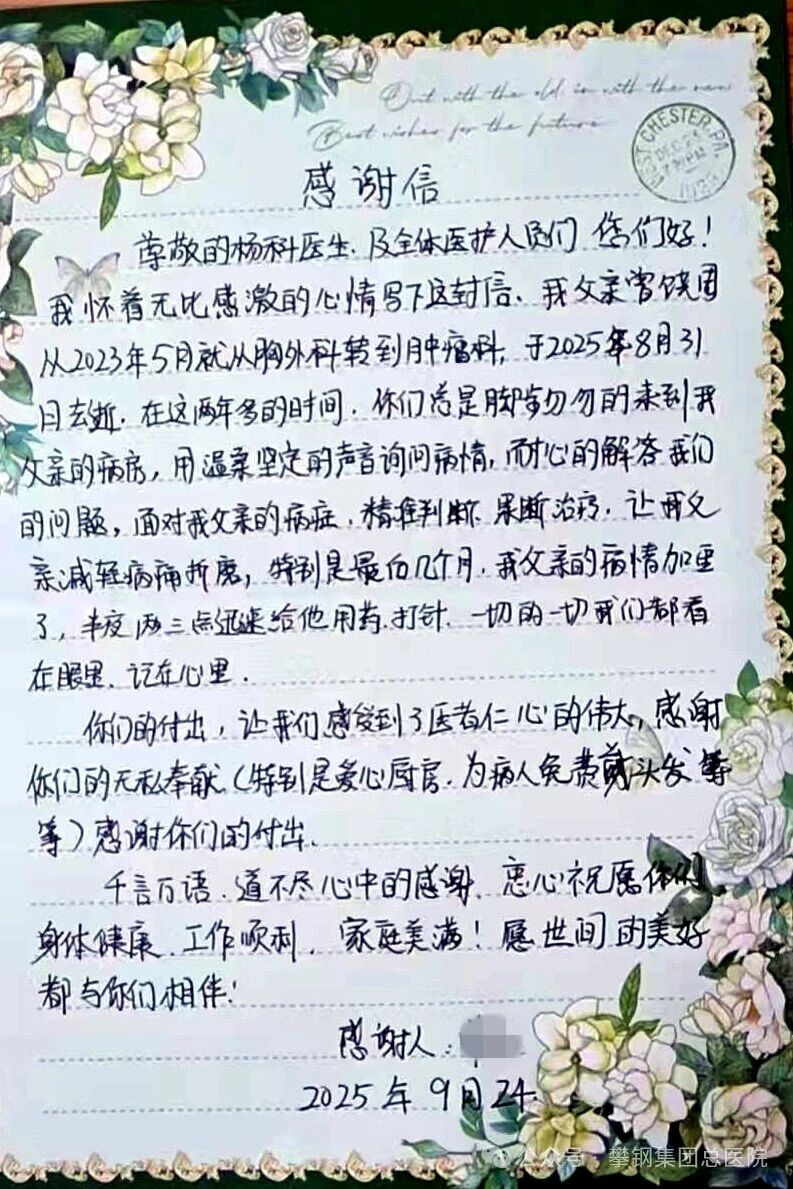 Out with the old, in with the new
Best wishes for the future
WEST CHESTER, PA.
感谢信
尊敬的杨科医生.及全体医护人员们 您们好!
我怀着无比感激的心情写下这封信.我父亲曾饶团
从2023年5月就从胸外科转到肿瘤科,于2025年8月31
日去逝.在这两年多的时间.你们总是脚步匆匆的来到我
父亲的病房,用温柔坚定的声音询问病情,耐心的解答我们
的问题,面对我父亲的病症.精准判断 果断治疗.让我父
亲减轻病痛折磨,特别是最后几个月.我父亲的病情加重
了,半夜两三点还是给他用药.打针.一切的一切我们都看
在眼里.记在心里.
你们的付出,让我们感受到了医者仁心的伟大,感谢
你们的无私奉献(特别是爱心厨房.为病人免费剪头发等
等)感谢你们的付出.
千言万语.道不尽心中的感谢.衷心祝愿你们
身体健康.工作顺利.家庭美满!愿世间的美好
都与你们相伴!
感谢人:
2025年9月24.
公众号·攀钢集团总医院